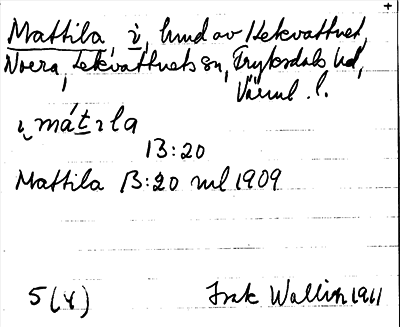 +
Mattila, i, hmd av Lekvattnet,
Norra, Lekvattnets sn, Fryksdals hd,
Värml. l.
i mát̲ıla
13:20
Mattila 13:20 1909
5(4) Wallin 1911